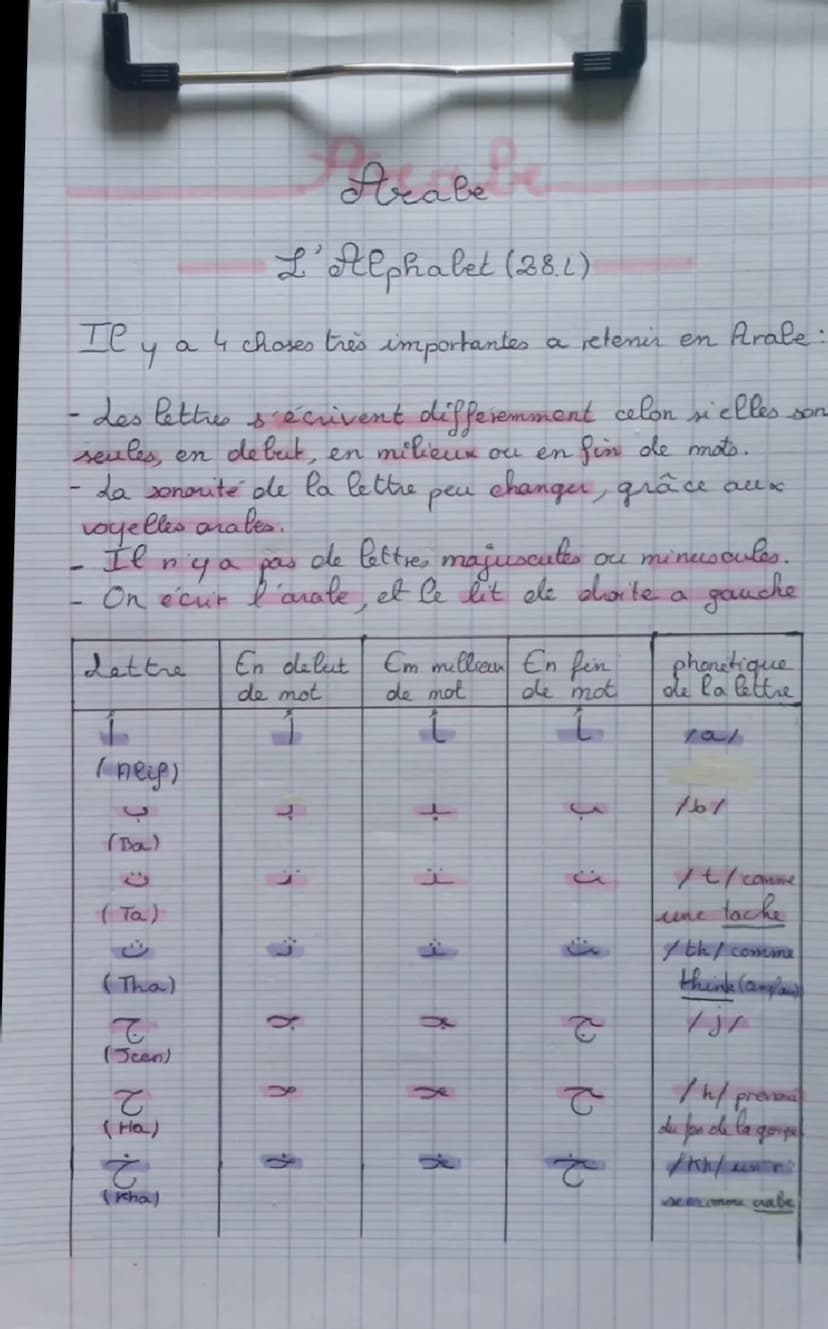 Arabe
Arabe
L'Alphabet (28.L)
Il y a 4 choses très importantes a retenir en Arabe :
- Les lettres s'écrivent différemment celon si elles son
seules, en debut, en milieux ou en fin de mots.
- La sonorité de la lettre peu changer, grâce aux
voyelles arabes.
- Il n'y a pas de lettres majuscules ou minuscules.
- On écrit l'arabe, et le lit de droite a gauche
Lettre En debut de mot En millieu de mot En fin de mot phonétique de la lettre
أ أ ـأ ـأ /a/
(Alif)
ب بـ ـبـ ـب /b/
(Ba)
ت تـ ـتـ ـت /t/ comme
(Ta) une tache
ث ثـ ـثـ ـث /th/ comme
(Tha) think
ج جـ ـجـ ـج /j/
(Jeen)
ح حـ ـحـ ـح /h/
(Ha) du de la gorge
خ خـ ـخـ ـخ /kh/
(Kha) comme arabe